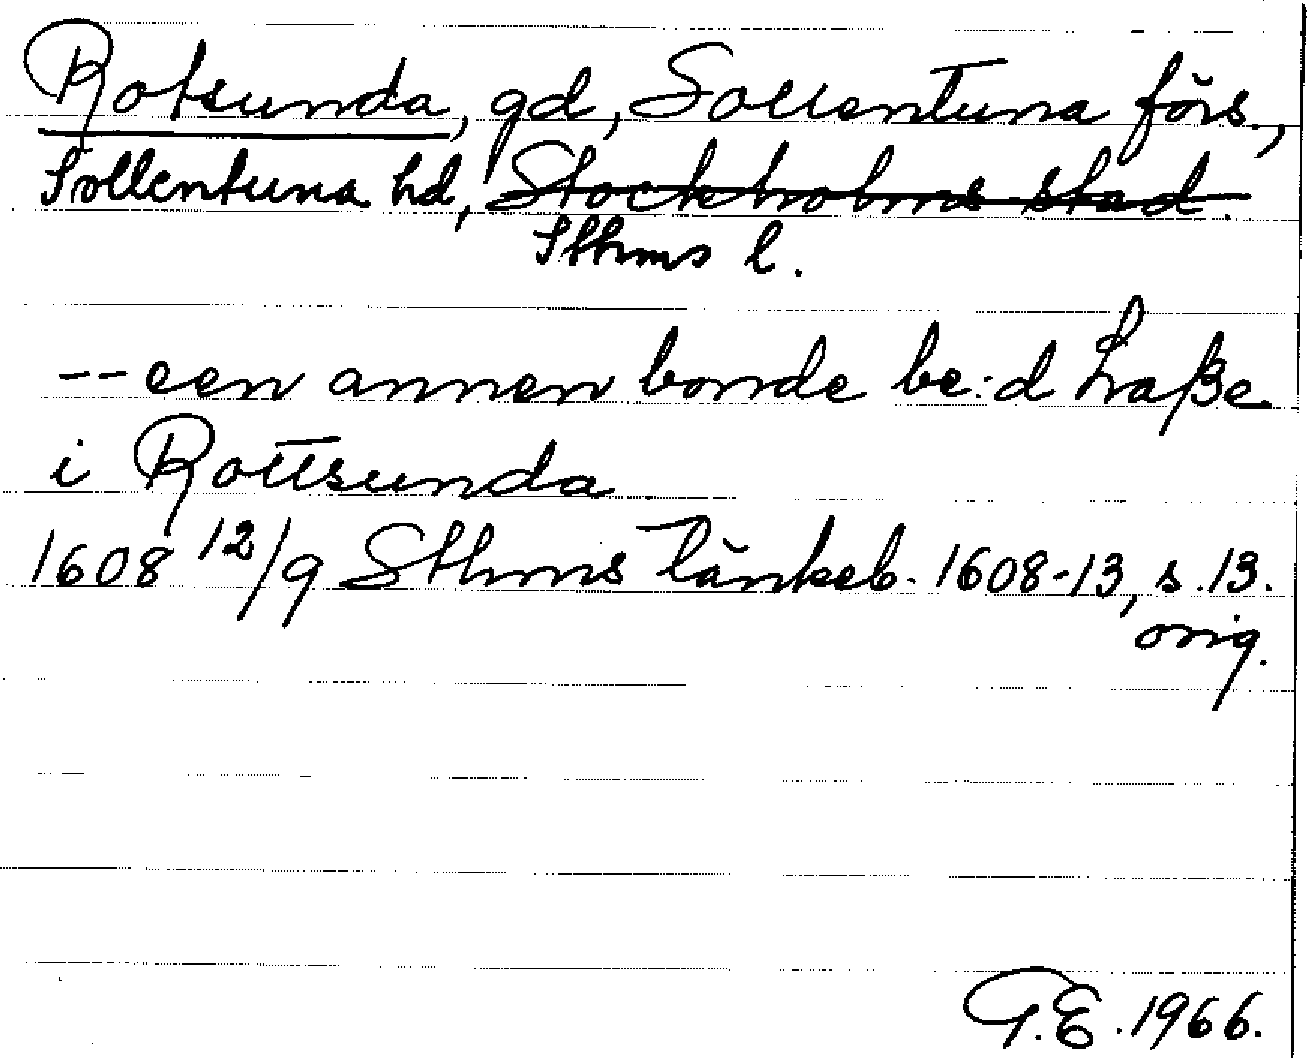 Rotsunda, gd, Sollentuna förs.,
Sollentuna hd, Stockholms stad.
Sthms l.
-- een annen bonde be:d Laße
i Rottsunda
1608 12/9 Sthms tänkeb. 1608-13, s. 13.
orig.
G.E. 1966.